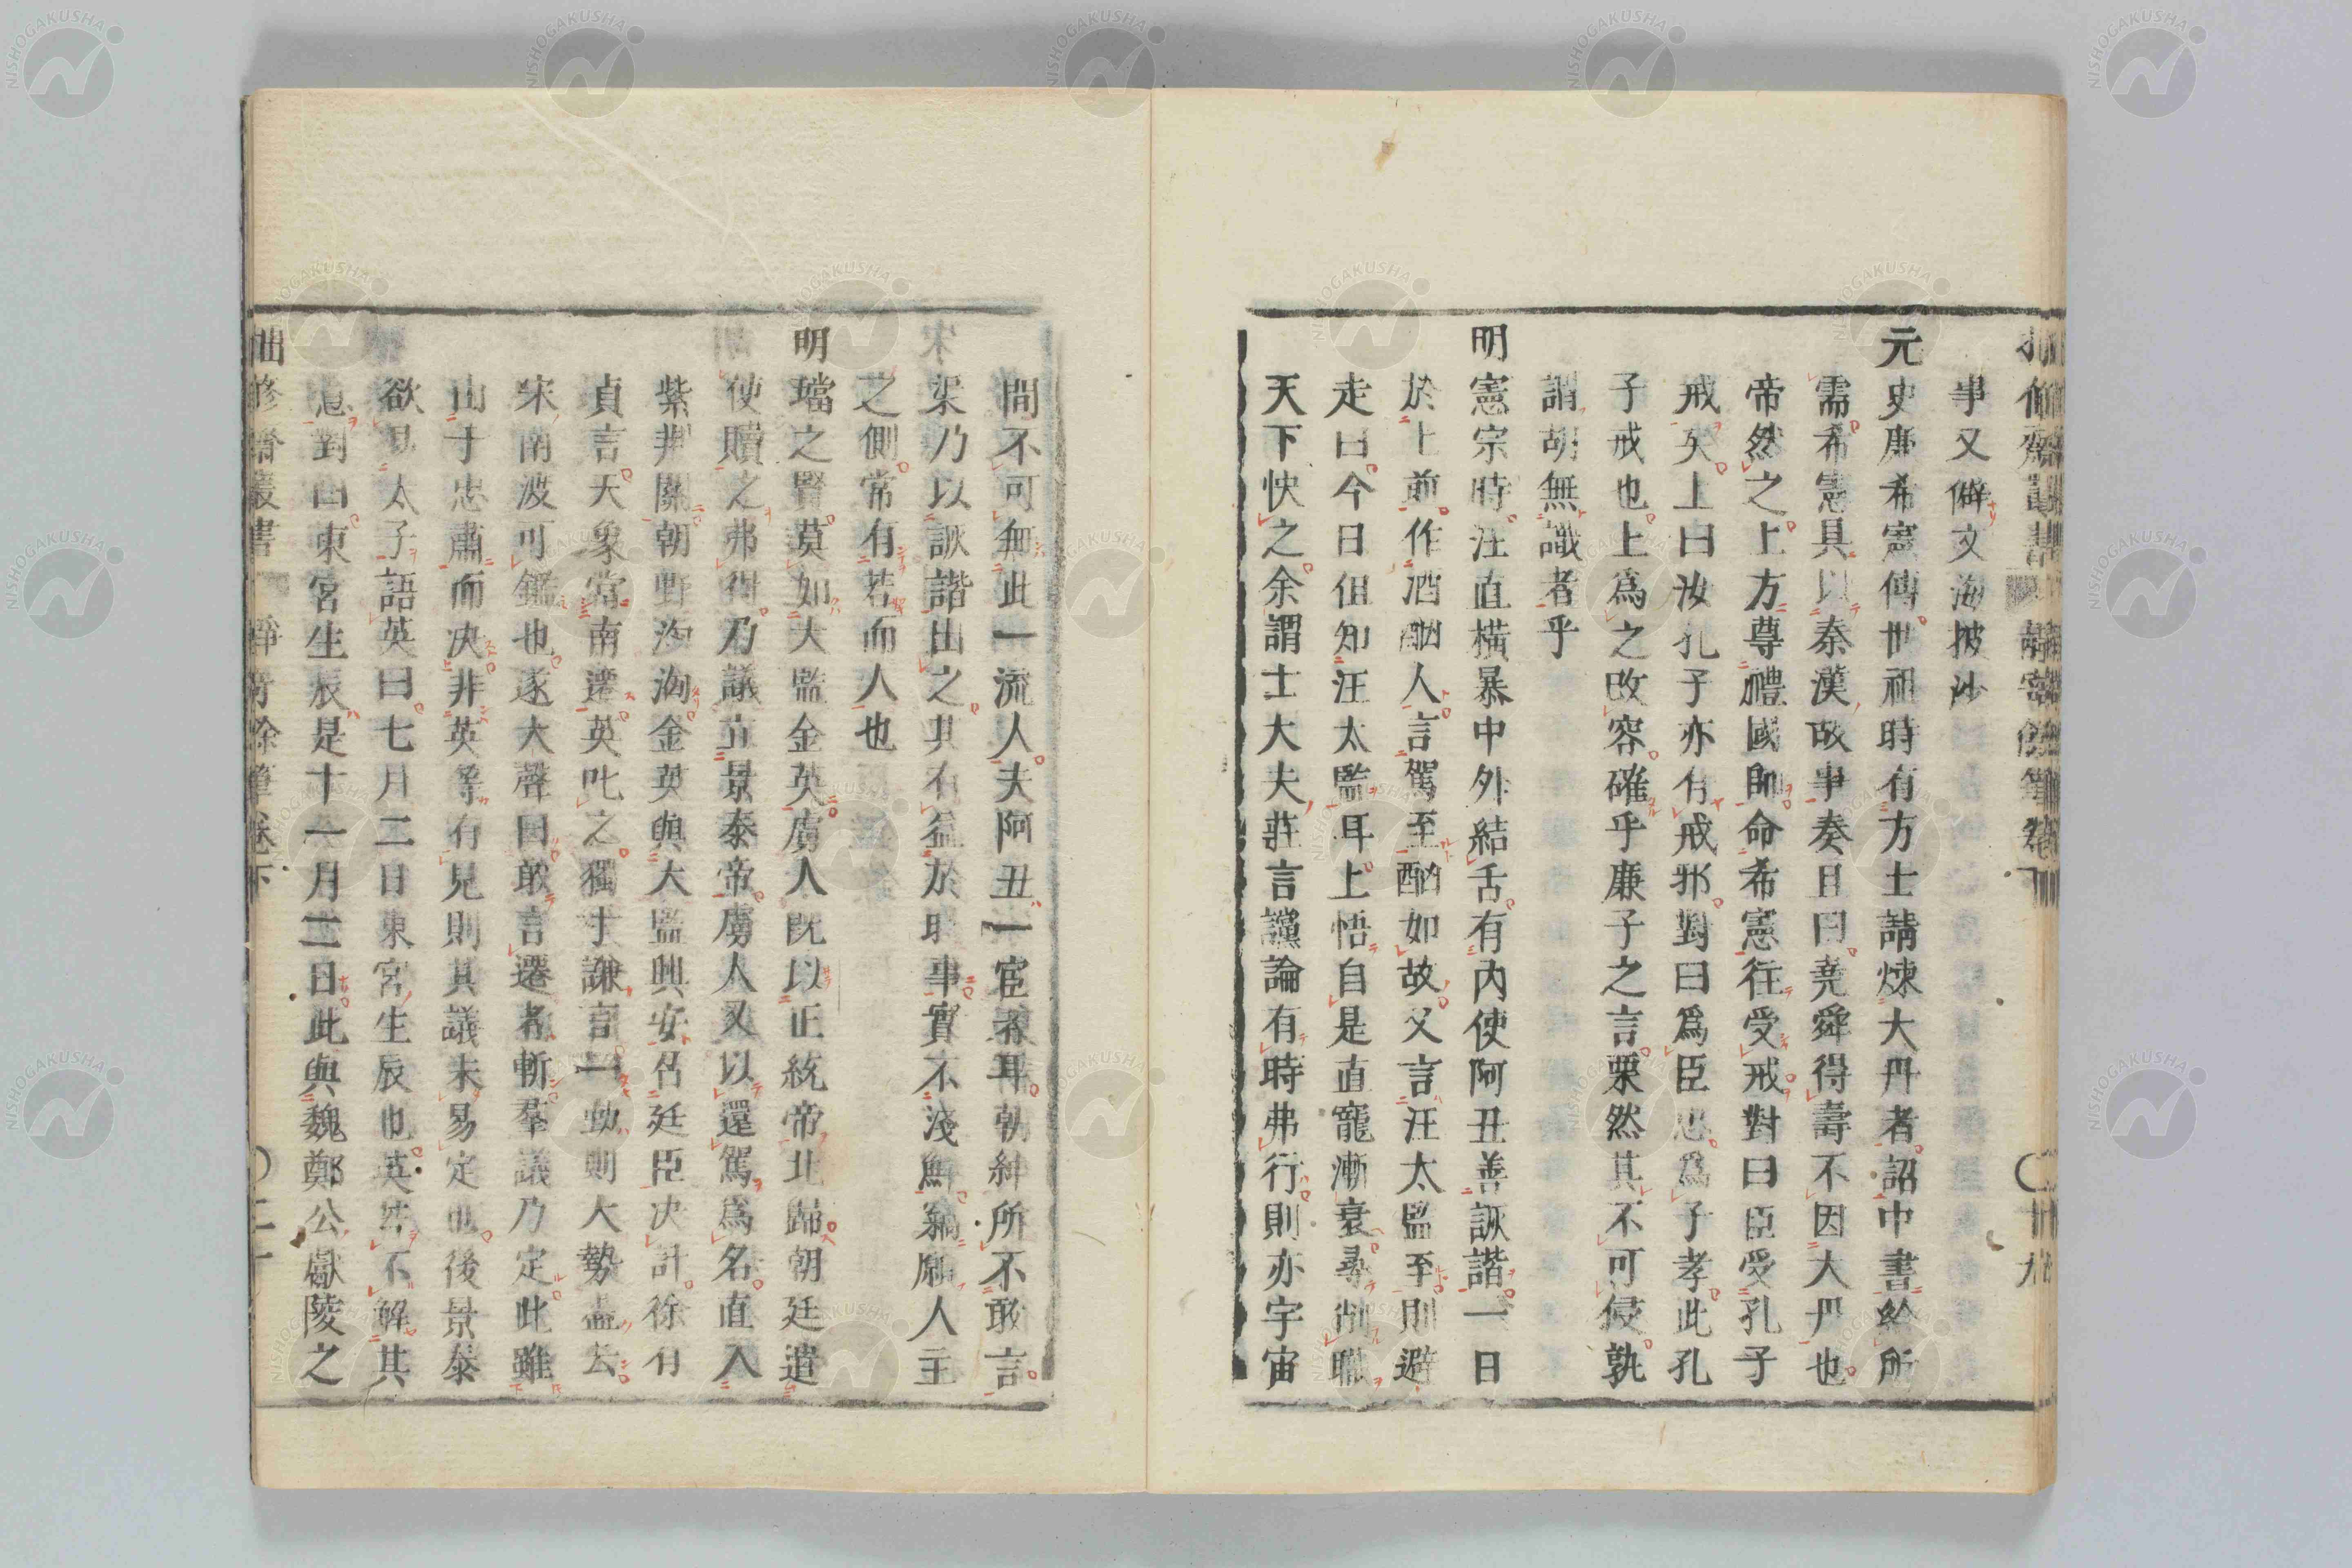 事又僻文海披沙
元史廉希憲傳世祖時有方士請煉大丹者詔中書給所
需希憲具以秦漢故事奏且曰堯舜得壽不因大丹也
帝然之上方尊禮國師命希憲往受戒對曰臣受孔子
戒矣上曰汝孔子亦有戒邪對曰爲臣忠爲子孝此孔
子戒也上爲之改容確乎廉子之言栗然其不可侵孰
謂胡無識者乎
明憲宗時汪直橫暴中外結舌有內使阿丑善詼諧一日
於上前作酒酗人言駕至酗如故又言汪太監至則避
走曰今日但知汪太監耳上悟自是直寵漸衰尋削職
天下快之余謂士大夫莊言讜論有時弗行則亦宇宙
間不可無此一流人夫阿丑一宦者耳朝紳所不敢言
渠乃以詼諧出之其有益於時事實不淺鮮竊願人主
之側常有若而人也
明璫之賢莫如大監金英虜人既以正統帝北歸朝廷遣
使贖之弗得乃議立景泰帝虜人又以還駕爲名直入
紫荆關朝野洶洶金英與大監興安召廷臣决計徐有
貞言天象當南遷英叱之獨于謙言一動則大勢盡去
宋南渡可鑑也遂大聲曰敢言遷者斬羣議乃定此雖
由于忠肅而决非英等有見則其議未易定也後景泰
欲易太子語英曰七月二日東宮生辰也英佯不解其
意對曰東宮生辰是十一月二日此與魏鄭公獻陵之